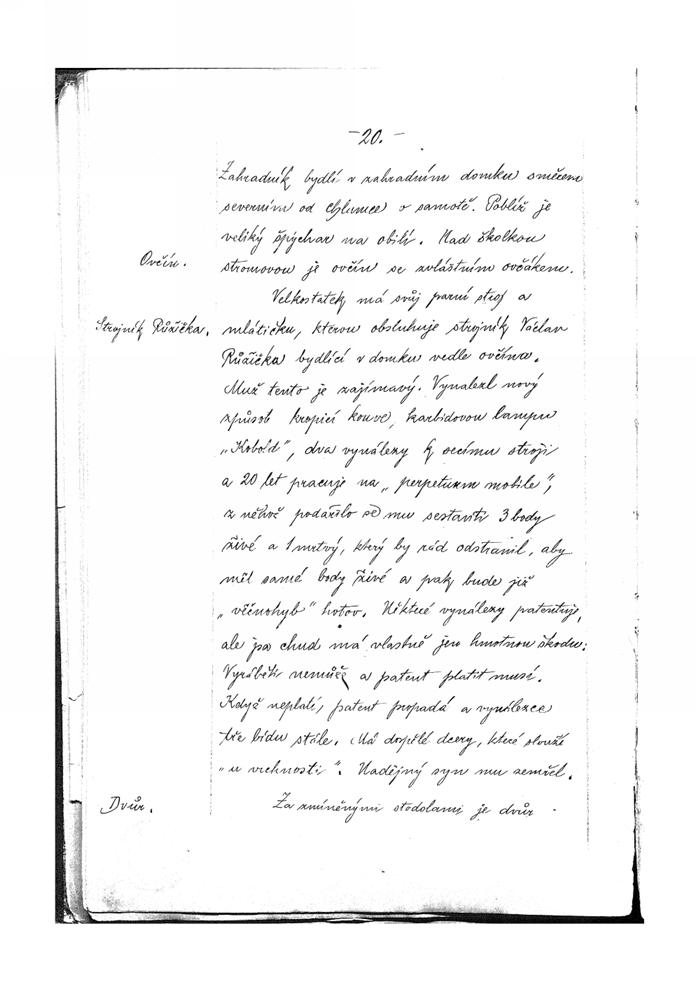 -20.-
Zahradník bydlí v zahradním domku směrem
severním od Chlumce o samotě. Poblíž je
veliký špýchar na obilí. Nad školkou
Ovčín.
stromovou je ovčín se zvláštním ovčákem.
Velkostatek má svůj parní stroj a
Strojník Růžička.
mlátičku, kterou obsluhuje strojník Václav
Růžička bydlící v domku vedle ovčína.
Muž tento je zajímavý. Vynalezl nový
způsob kropicí konve, karbidovou lampu
„Kobold", dva vynálezy k secímu stroji
a 20 let pracuje na „perpetuum mobile",
z něhož podařilo se mu sestaviti 3 body
živé a 1 mrtvý, který by rád odstranil, aby
měl samé body živé a pak bude již
„věčnohyb" hotov. Některé vynálezy patentuje,
ale jsa chud má vlastně jen hmotnou škodu:
Vyráběti nemůže a patent platit musí.
Když neplatí, patent propadá a vynálezce
tře bídu stále. Má dospělé dcery, které slouží
„u vrchnosti". Nadějný syn mu zemřel.
Dvůr.
Za zmíněnými stodolami je dvůr